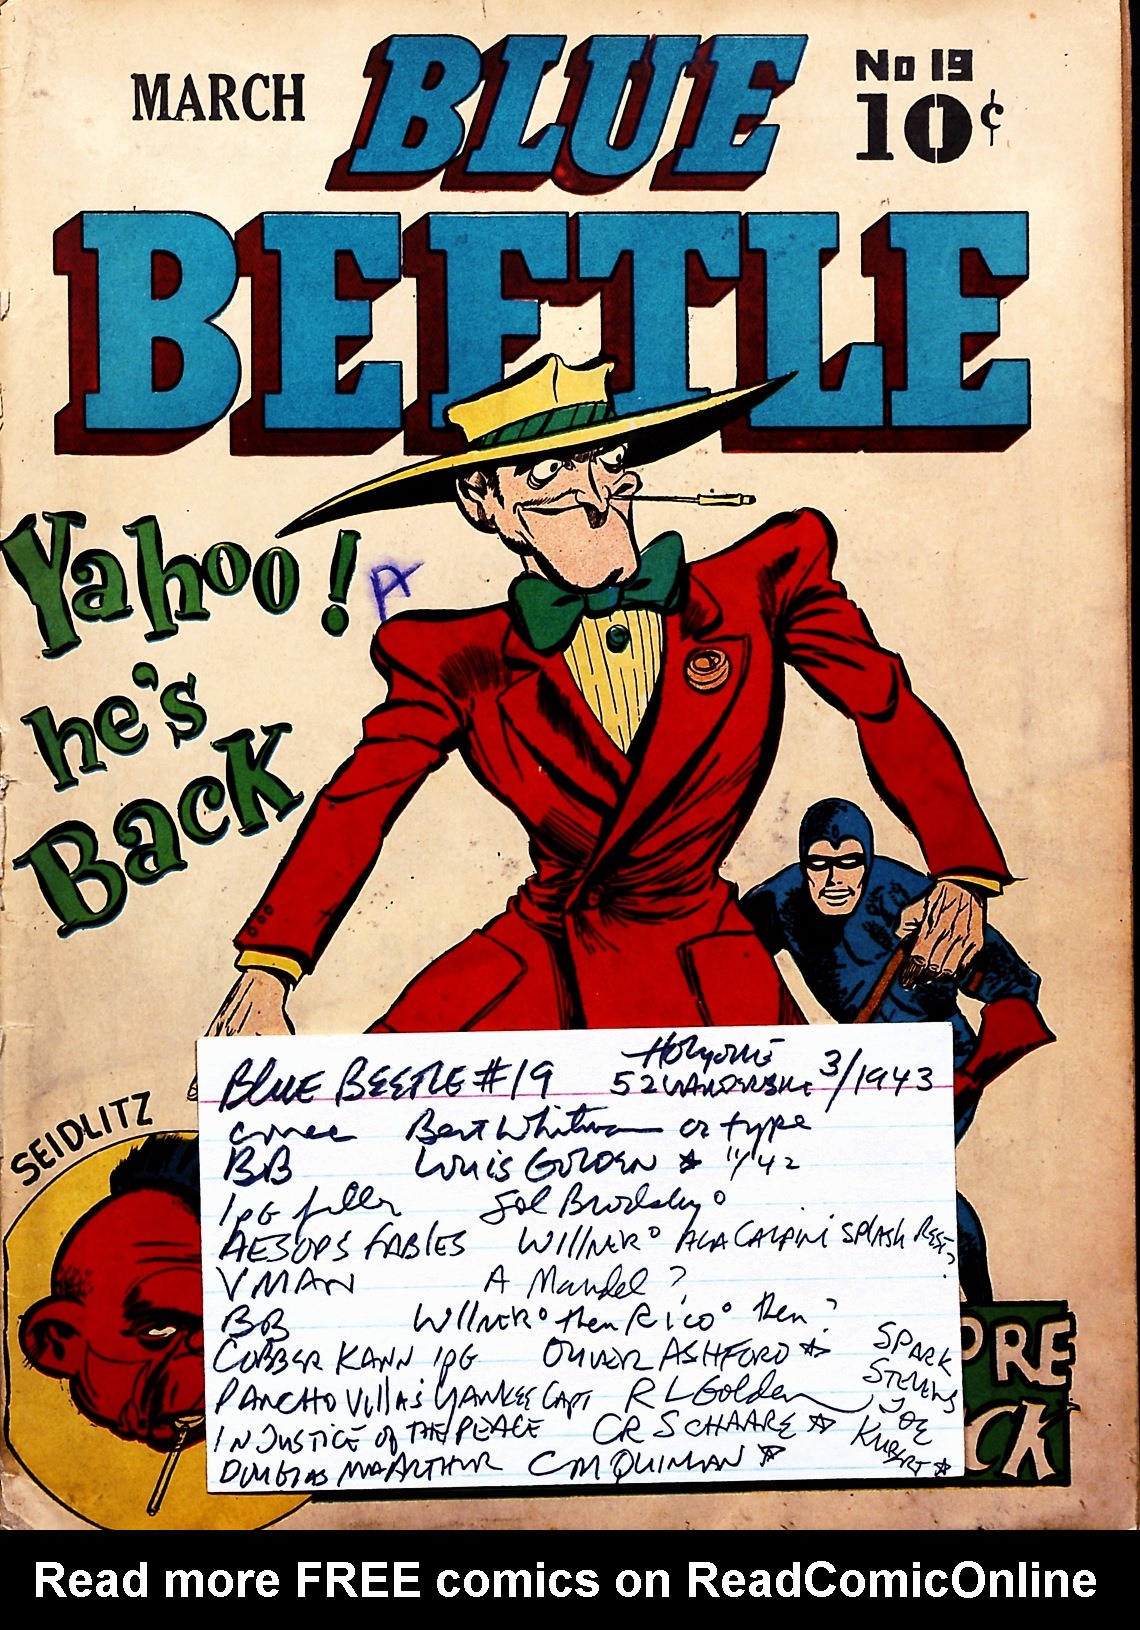 MARCH
BLUE
No 19
10¢
BEETLE
Yahoo!
he's
Back
A
SEIDLITZ
BLUE BEETLE #19 HOLYOKE 3/1943
52
Bert Whitman or type
BB LOUIS GOLDEN ☆ 11/42
1PG filler Sol Brodsky°
AESOPS FABLES WILLNER° AlA CALPINI SPLASH REST?
VMAN A Mandel ?
BB WILLNER° then RICO° then ?
COBBER KANN 1PG OLIVER ASHFORD ☆
SPARK
STEVENS
PANCHO Villa's YANKEE CAPT R L Golden
JOE
KUBERT ☆
INJUSTICE of THE PEACE CR SCHAARE ☆
DOUGLAS MacARTHUR CM QUINLAN ☆
ORE
CK
Read more FREE comics on ReadComicOnline